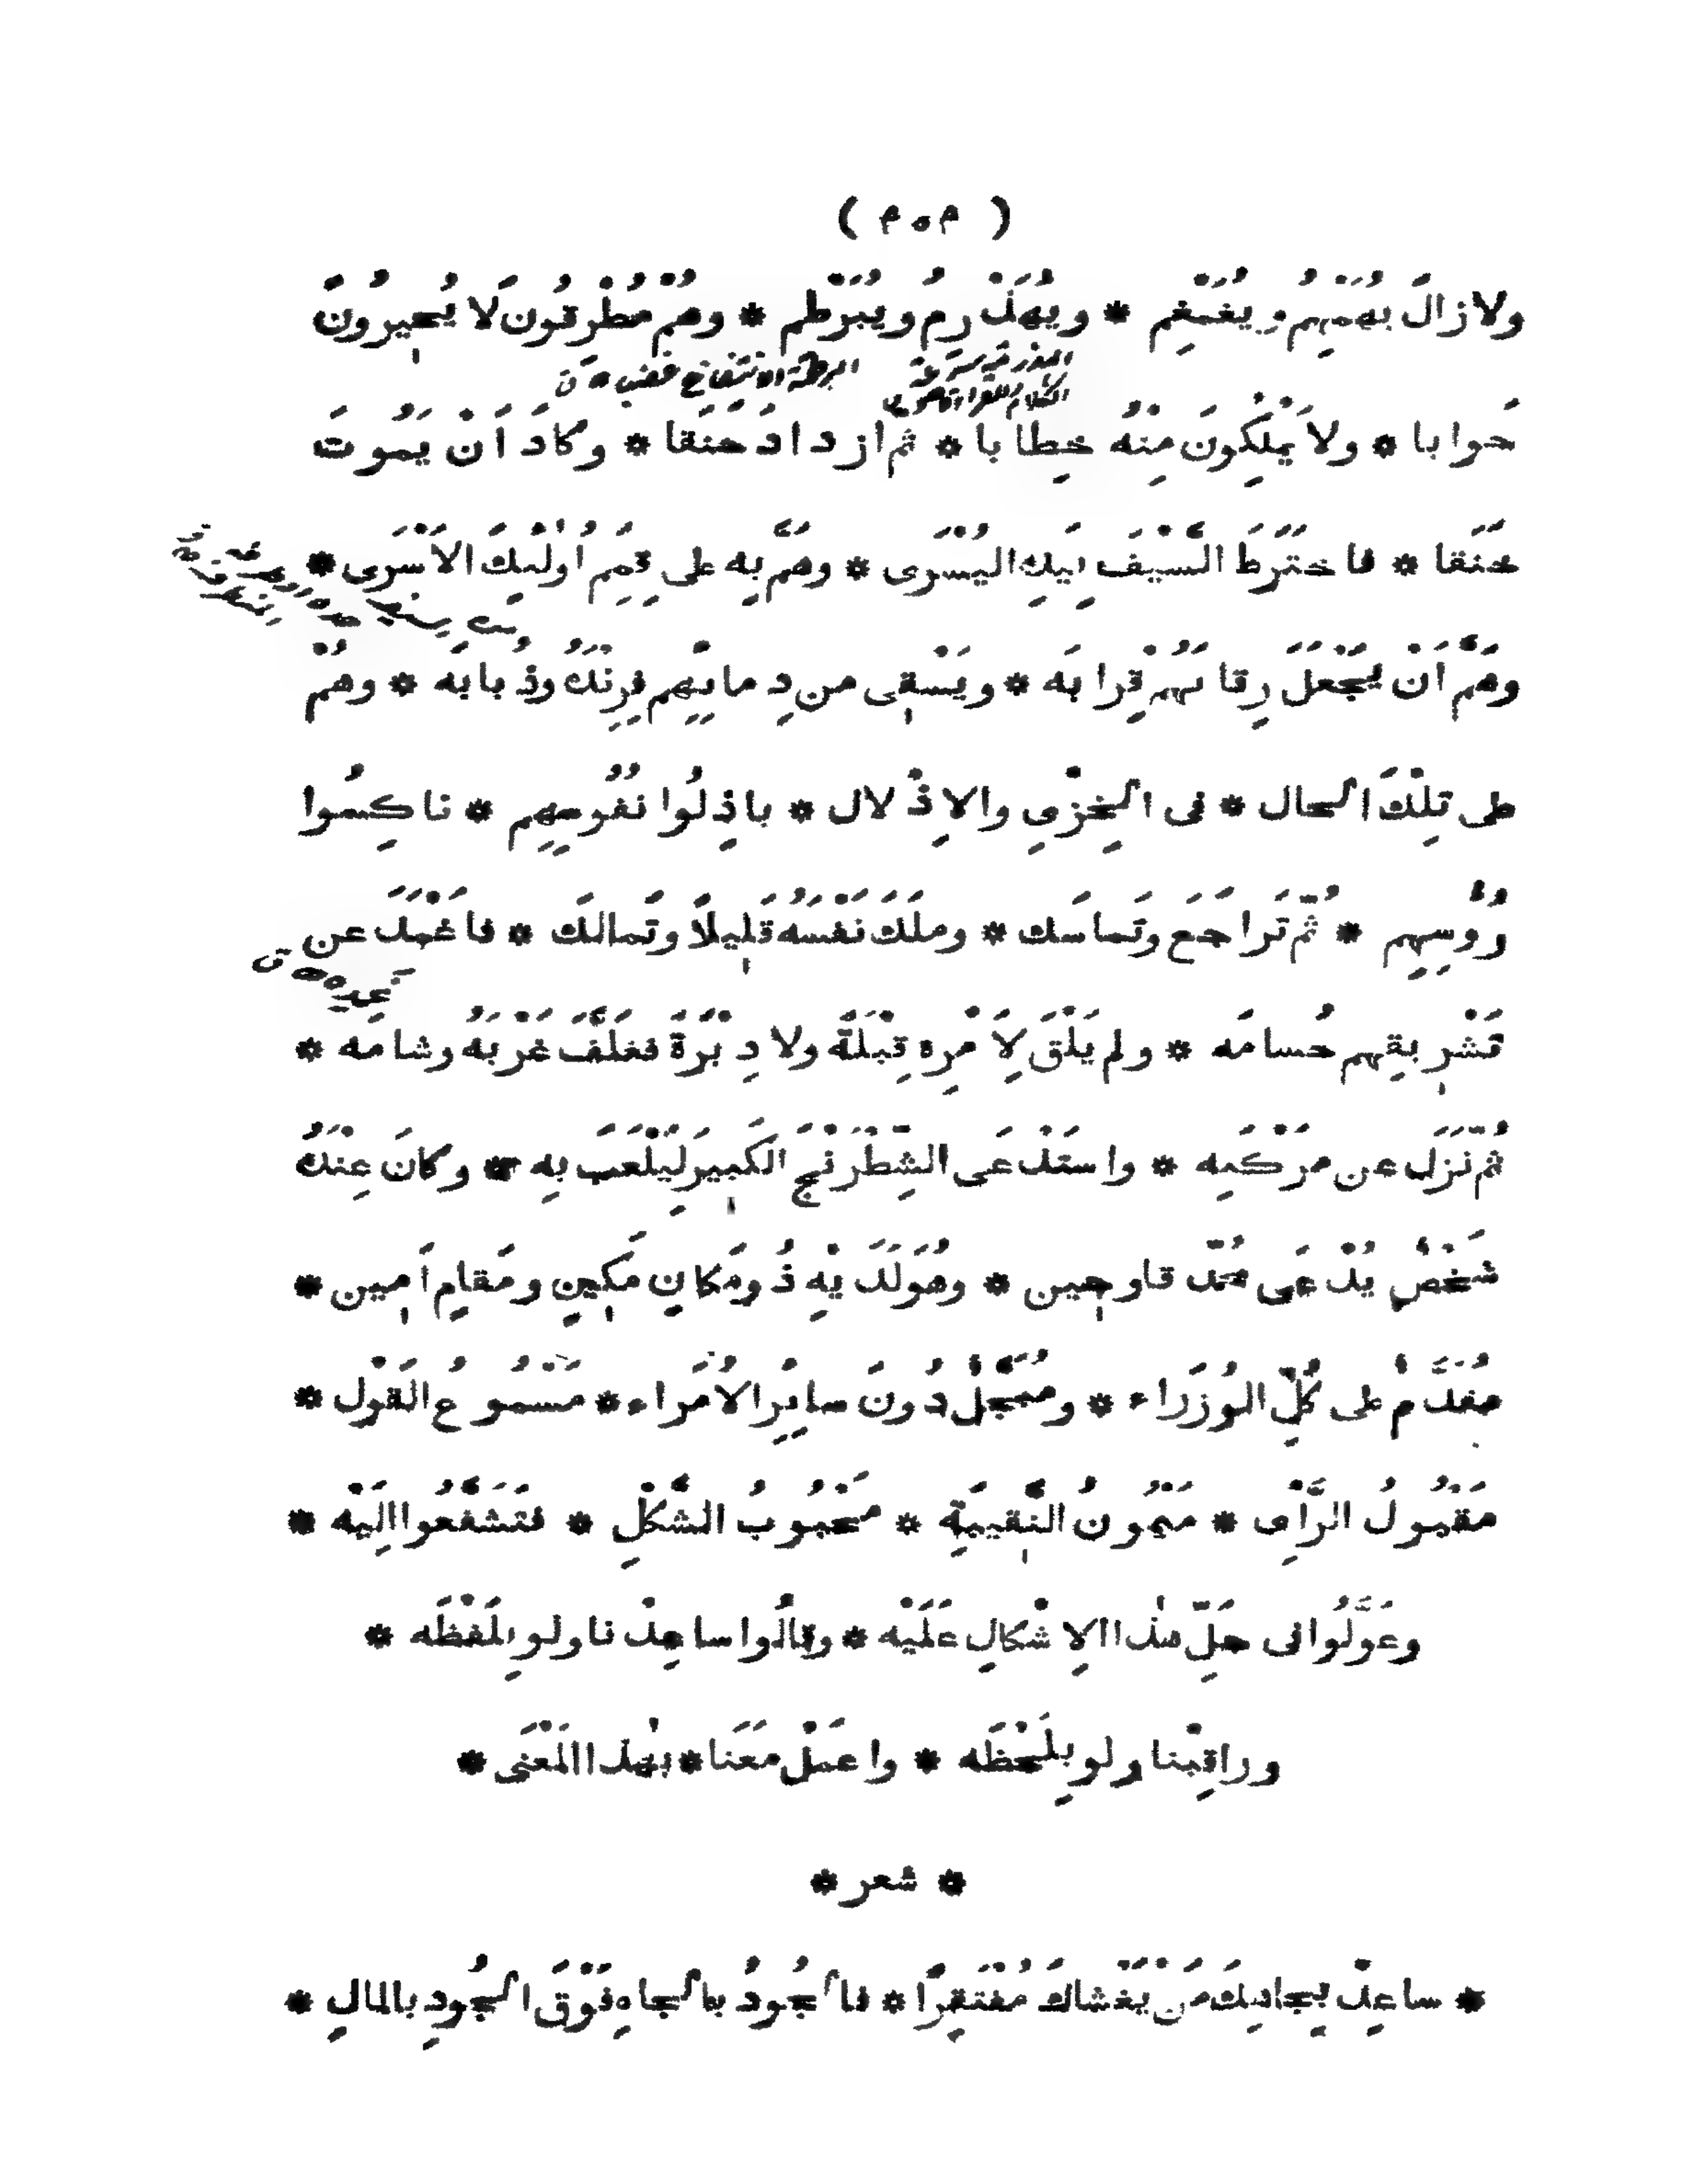 ( ٣٠٣ )
ولا زالَ يُهَمْهِمُ ويُغَمْغِم * ويُهَذْرِمُ ويُبَرْطِم * وهُمْ مُطْرِقُونَ لَا يُحِيرُونَ
الهذرمة سرعة الكلام والقراءة
البرطمة الانتفاخ غضبا
جَوابا * ولا يَمْلِكُونَ مِنْهُ خِطابا * ثم ازدادَ حَنَقا * وكادَ اَنْ يَمُوتَ
حَنَقا * فاخْتَرَطَ السَّيْفَ بِيَدِهِ اليُسْرَى * وهَمَّ بِه على قِمَمِ اُولٰئِكَ الاَسْرَى *
وهَمَّ اَنْ يَجْعَلَ رِقابَهُمْ قِرابَه * ويَسْقِى من دِمائِهِم فِرِنْدَهُ وذُبابَه * وهُمْ
على تِلْكَ الحال * فى الخِزْىِ والاِذْلال * باذِلُوا نُفُوسِهِم * ناكِسُوا
رُؤُسِهِم * ثُمَّ تَراجَعَ وتَماسَك * ومَلَكَ نَفْسَهُ قَلِيلًا وتَمالَك * فاَغْمَدَ عن
تَشْرِيقِهِم حُسامَه * ولم يَلْقَ لِاَمْرِهِ قِبْلَةً ولا دِبْرَةً فغَلَّفَ غَرْبَهُ وشامَه *
ثُمَّ نَزَلَ عن مَرْكَبِه * واسْتَدْعَى الشِّطْرَنْجَ الكَبِيرَ لِيَلْعَبَ بِه * وكانَ عِنْدَهُ
شَخْصٌ يُدْعَى مُحَمَّد قاوجِين * وهُوَ لَدَيْهِ ذُو مَكانٍ مَكِينٍ ومَقامٍ اَمِين *
مُقَدَّمٌ على كُلِّ الوُزَراء * ومُبَجَّلٌ دُونَ سائِرِ الاُمَراء * مَسْمُوعُ القَوْل *
مَقْبُولُ الرَّأْىِ * مَيْمُونُ النَّقِيبَةِ * مَحْبُوبُ الشَّكْلِ * فتَشَفَّعُوا اِلَيْه *
وعَوَّلُوا فى حَلِّ هٰذا الاِشْكالِ عَلَيْه * وقالُوا ساعِدْنا ولو بِلَفْظَه *
وراقِبْنا ولو بِلَحْظَه * واعْمَلْ مَعَنا * بهٰذا المَعْنَى *
* شعر *
* ساعِدْ بِجاهِكَ مَن يَغْشاكَ مُفْتَقِرًا * فالجُودُ بالجاهِ فَوْقَ الجُودِ بالمالِ *